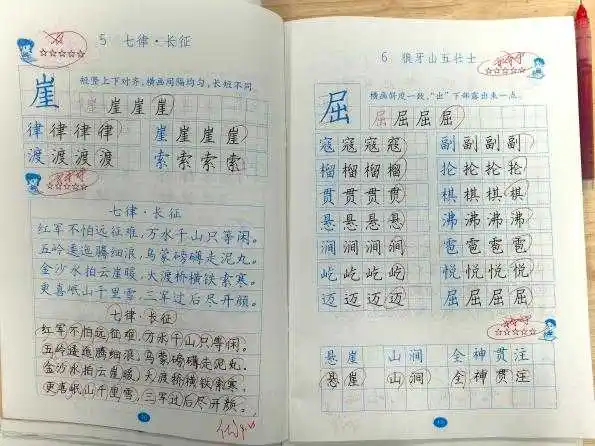 5 七律·长征
崖
短竖上下对齐,横画间隔均匀,长短不同。
崖 崖 崖 崖
律 律 律 律 律 崖 崖 崖 崖
渡 渡 渡 渡 索 索 索 索
七律·长征
红军不怕远征难,万水千山只等闲。
五岭逶迤腾细浪,乌蒙磅礴走泥丸。
金沙水拍云崖暖,大渡桥横铁索寒。
更喜岷山千里雪,三军过后尽开颜。
七律·长征
红军不怕远征难,万水千山只等闲。
五岭逶迤腾细浪,乌蒙磅礴走泥丸。
金沙水拍云崖暖,大渡桥横铁索寒。
更喜岷山千里雪,三军过后尽开颜。
6 狼牙山五壮士
屈
横画斜度一致,“出”下部露出来一点。
屈 屈 屈 屈
寇 寇 寇 寇 副 副 副 副
榴 榴 榴 榴 抡 抡 抡 抡
贯 贯 贯 贯 棋 棋 棋 棋
悬 悬 悬 悬 沸 沸 沸 沸
涧 涧 涧 涧 雹 雹 雹 雹
屹 屹 屹 屹 悦 悦 悦 悦
迈 迈 迈 迈 屈 屈 屈 屈
悬崖 山涧 全神贯注
悬崖 山涧 全神贯注